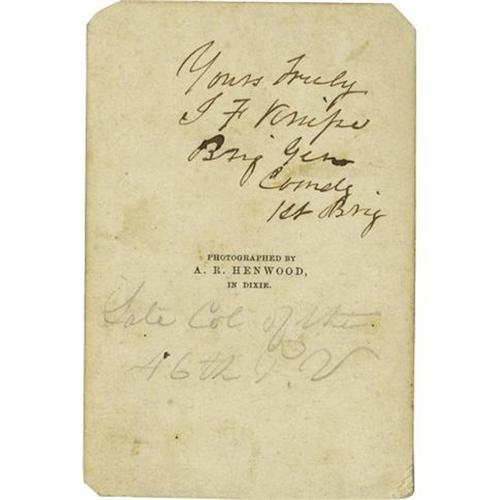 Yours Truly
J F Knipe
Brig Gen
Comdg
1st Brig
PHOTOGRAPHED BY
A. R. HENWOOD,
IN DIXIE.
Late Col of the
46th P. V